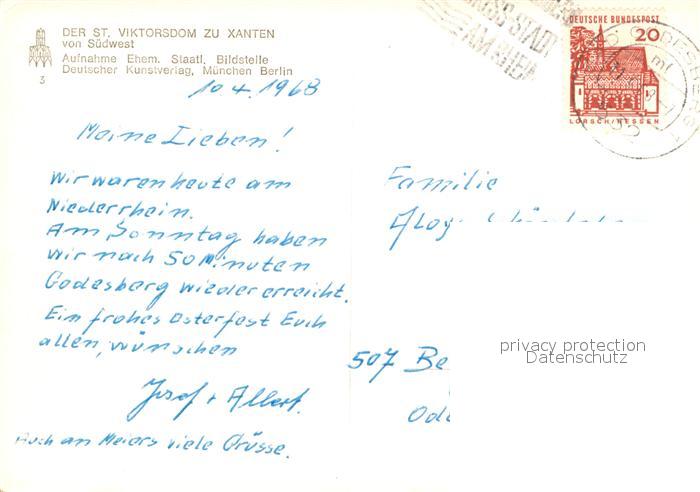 DER ST. VIKTORSDOM ZU XANTEN
von Südwest
Aufnahme Ehem. Staatl. Bildstelle
Deutscher Kunstverlag, München Berlin
3
DEUTSCHE BUNDESPOST
20
LORSCH/HESSEN
10.4.1968
Meine Lieben!
Wir waren heute am
Niederrhein.
Am Sonntag haben
wir nach 50 Minuten
Godesberg wieder erreicht.
Ein frohes Osterfest Euch
allen, wünschen
Josef + Albert.
Auch an Meiers viele Grüsse.
Familie
507 Be
privacy protection
Datenschutz